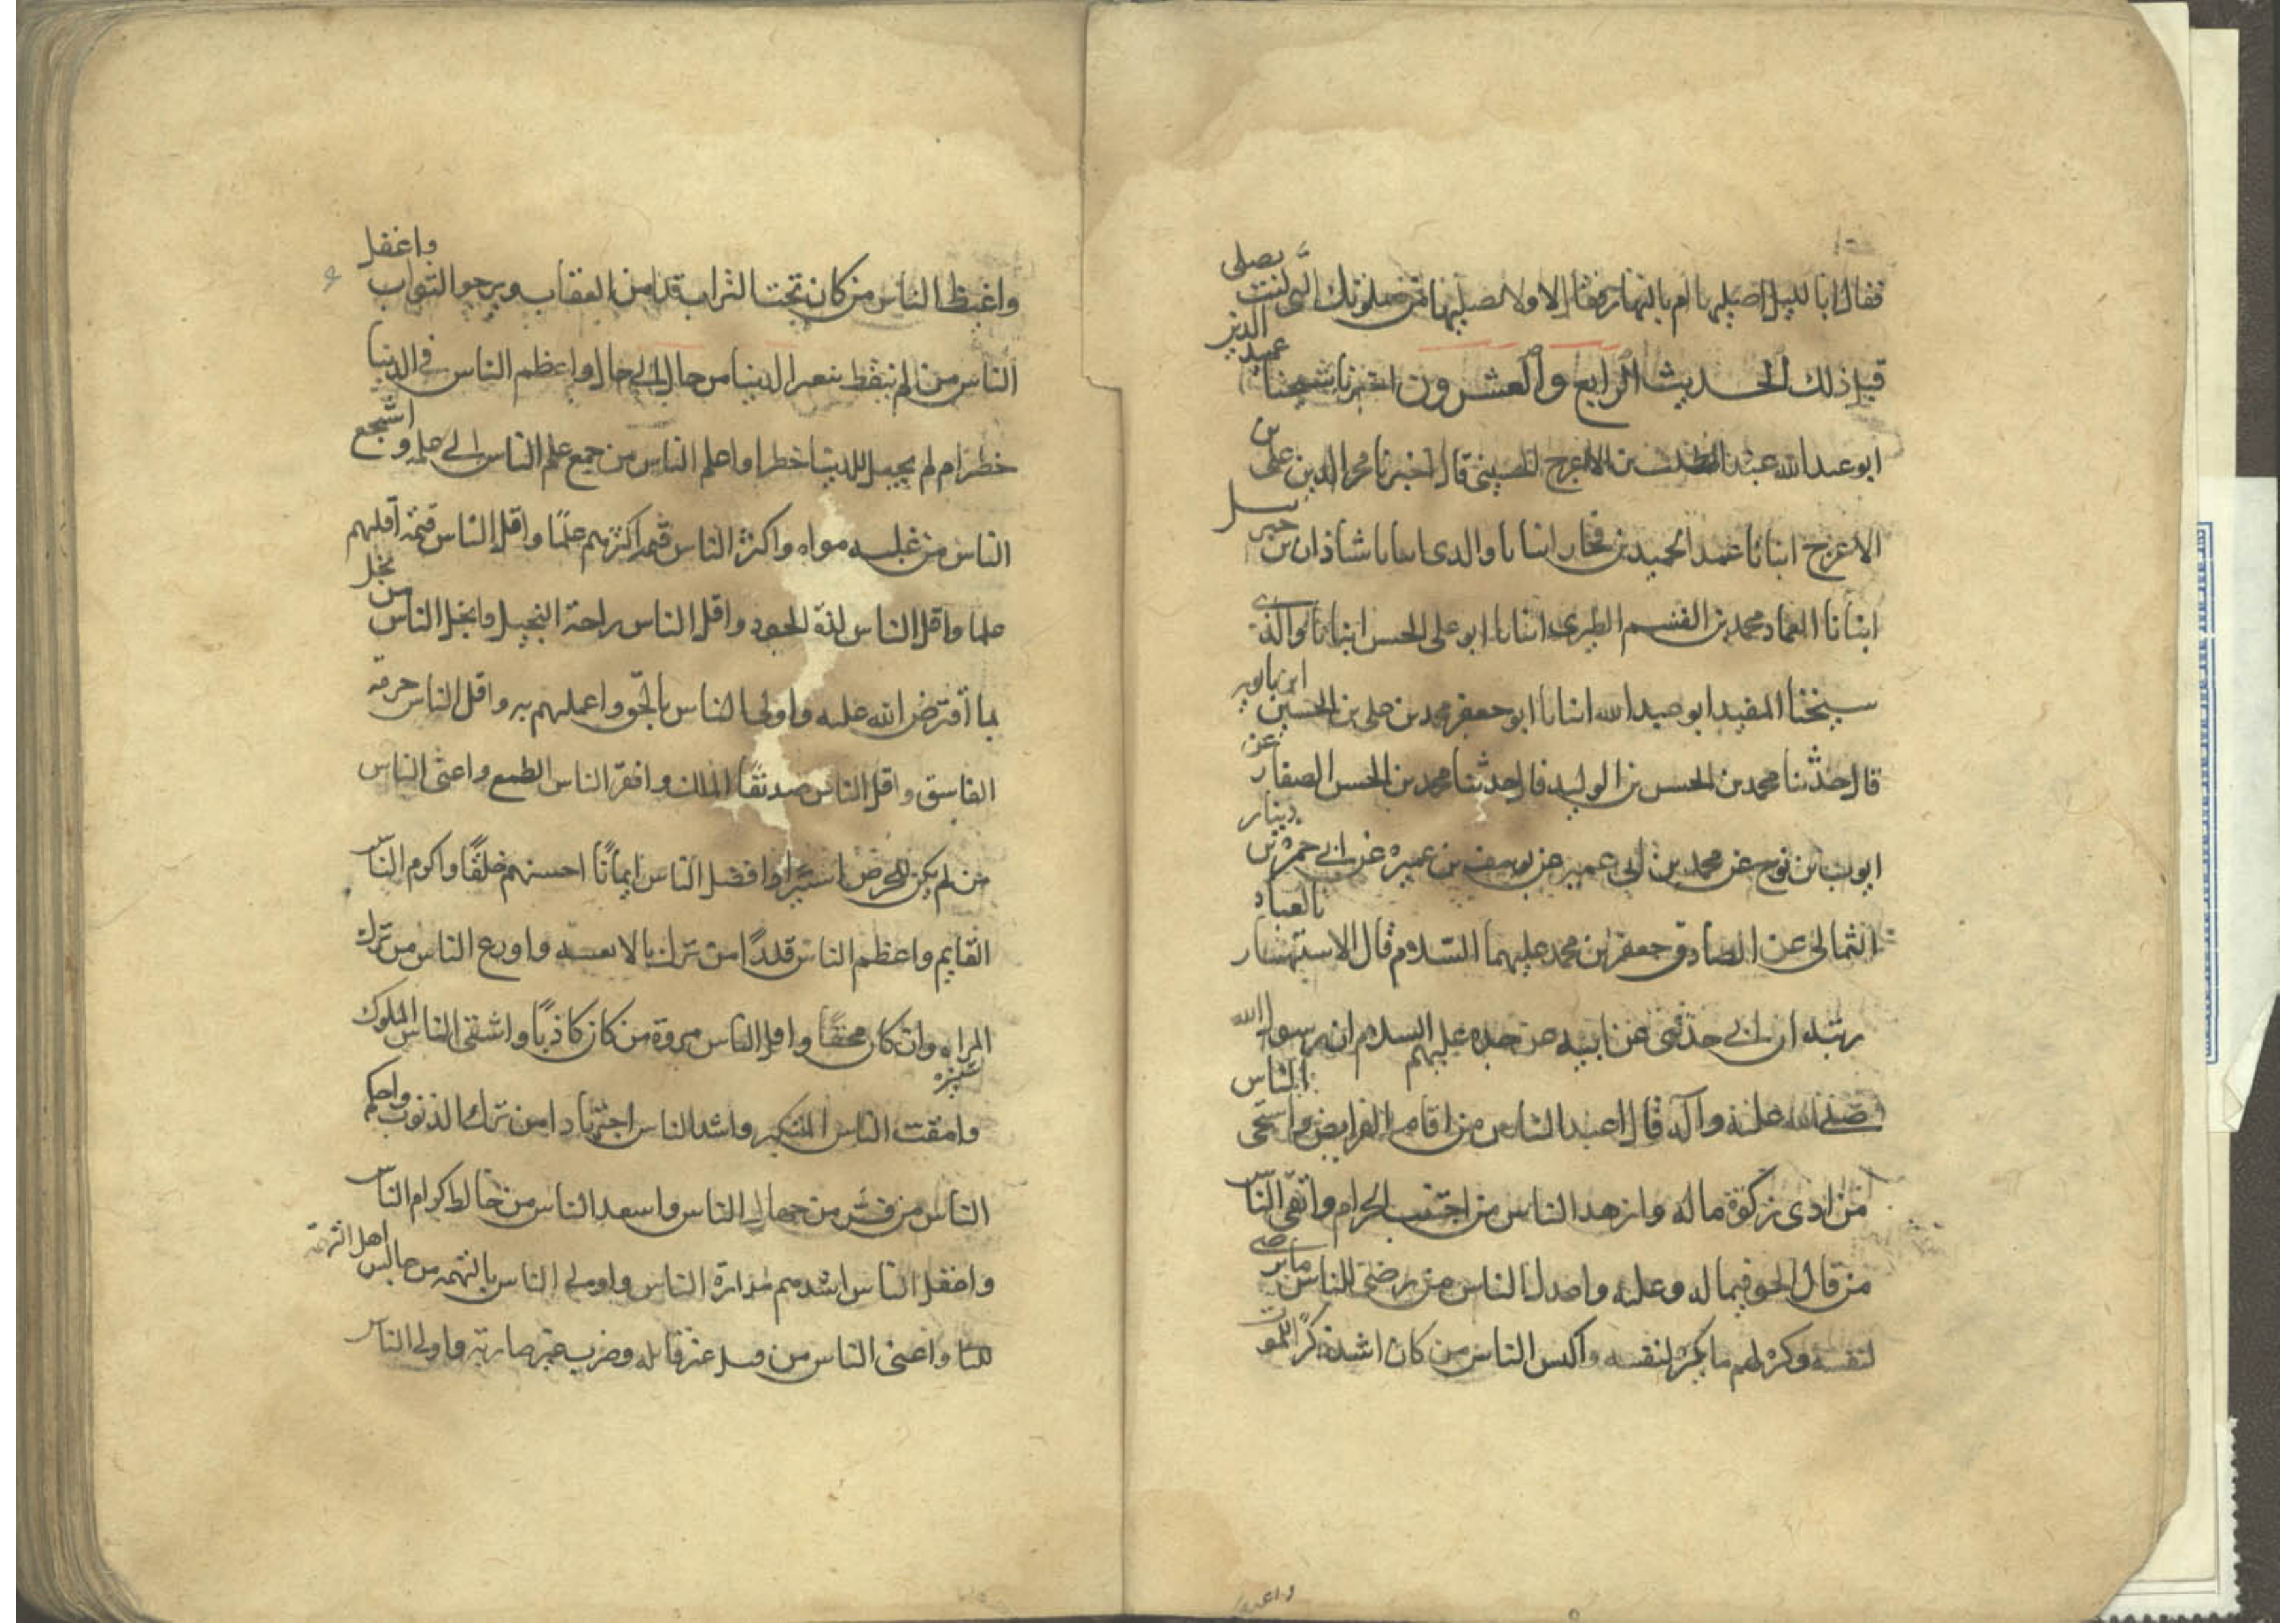 فقال ابا لليل اصليها ام بالنهار فقال لا ولا تصليها من صلوتك التي كنت تصلى
قبل ذلك الحديث الرابع والعشرون اخبرنا شيخنا عميد الدين
ابو عبدالله عبد المطلب بن الاعرج الحسيني قال اخبرنا فخر الدين على بن
الاعرج انبانا عبد الحميد بن فخار انبانا والدى انبانا شاذان بن جبرئيل
انبانا العماد محمد بن القسم الطبرى انبانا ابو على الحسن انبانا والدى
شيخنا المفيد ابو عبد الله انبانا ابو جعفر محمد بن على بن الحسين ابن بابويه
قال حدثنا محمد بن الحسن بن الوليد قال حدثنا محمد بن الحسن الصفار عن
ايوب بن نوح عن محمد بن ابى عمير عن يوسف بن عميره عن ابى حمزه بن دينار
الثمالى عن الصادق جعفر ابن محمد عليهما السلام قال الاستهتار بالعباد
ريبه ان ابى حدثنى عن ابيه عن جده عليهم السلام ان رسول الله
صلى الله عليه وآله قال اعبد الناس من اقام الفرايض واسخى الناس
من ادى زكوة ماله وازهد الناس من اجتنب الحرام واتقى الناس
من قال الحق فيما له وعليه واعدل الناس من رضى للناس ما يرضى
لنفسه وكره لهم ما يكره لنفسه واكيس الناس من كان اشد ذكرا للموت
واغبط الناس من كان تحت التراب قد امن العقاب ويرجو الثواب واغفل
الناس من لم يتعظ بتغير الدنيا من حال الى حال واعظم الناس فى الدنيا
خطرا من لم يجعل للدنيا خطرا واعلم الناس من جمع علم الناس الى علمه واشجع
الناس من غلب هواه واكثر الناس قيمه اكثرهم علمًا واقل الناس قيمة اقلهم
علما واقل الناس لذة الحسود واقل الناس راحة البخيل وابخل الناس من بخل
بما افترض الله عليه واولى الناس بالحق واعملهم به واقل الناس حرمة
الفاسق واقل الناس صديقًا الملك وافقر الناس الطمع واغنى الناس
من لم يكن للحرص اسيرا وافضل الناس ايمانًا احسنهم خلقًا واكرم الناس
القايم واعظم الناس قدرًا من ترك ما لا يعنيه واورع الناس من ترك
المراء وان كان محقًا واقل الناس مروة من كان كاذبًا واشقى الناس الملوك
وامقت الناس المتكبر واشد الناس اجتهادا من ترك الذنوب واحكم
الناس من فر من جهال الناس واسعد الناس من خالط كرام الناس
واعقل الناس اشدهم مدارة الناس واولى الناس بالتهمه من جالس اهل التهمة
واعتى الناس من قتل غير قاتله وضرب غير ضاربه واولى الناس